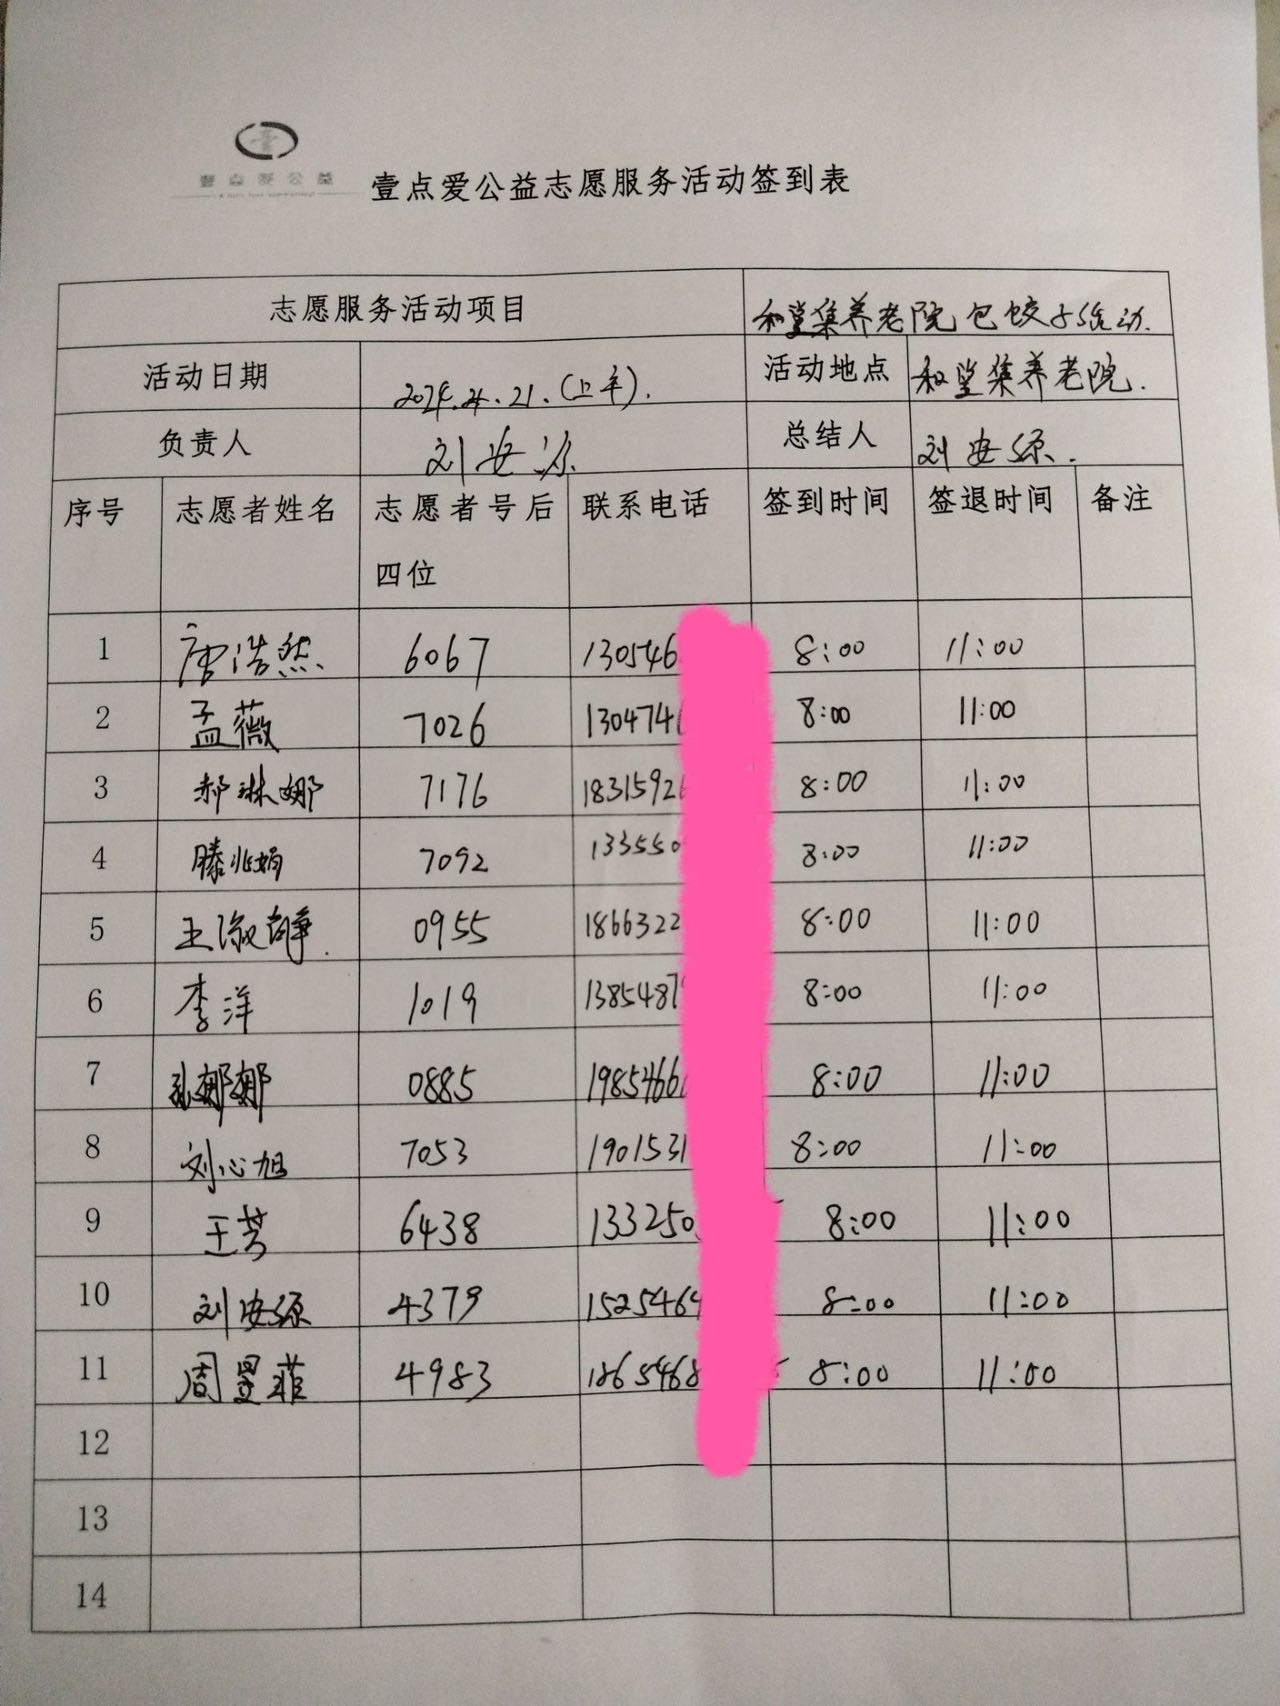 壹点爱公益
壹点爱公益志愿服务活动签到表
志愿服务活动项目 和堂集养老院包饺子活动.
活动日期 2024.4.21.(上午). 活动地点 和堂集养老院.
负责人 刘安源 总结人 刘安源.
序号 志愿者姓名 志愿者号后 联系电话 签到时间 签退时间 备注
四位
1 唐浩然 6067 130546 8:00 11:00
2 孟薇 7026 130474 8:00 11:00
3 郝琳娜 7176 1831592 8:00 11:00
4 滕兆娟 7092 13355 8:00 11:00
5 王淑静 0955 1866322 8:00 11:00
6 李洋 1019 1385487 8:00 11:00
7 孔娜娜 0885 1985466 8:00 11:00
8 刘心旭 7053 1901531 8:00 11:00
9 王芳 6438 133250 8:00 11:00
10 刘安源 4379 1525464 8:00 11:00
11 周昱菲 4983 1865468 8:00 11:00
12
13
14